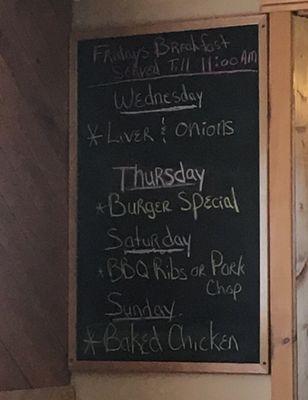 Fridays Breakfast
Served Till 11:00 AM
Wednesday
* Liver & Onions
Thursday
* Burger Special
Saturday
* BBQ Ribs or Pork
Chop
Sunday
* Baked Chicken